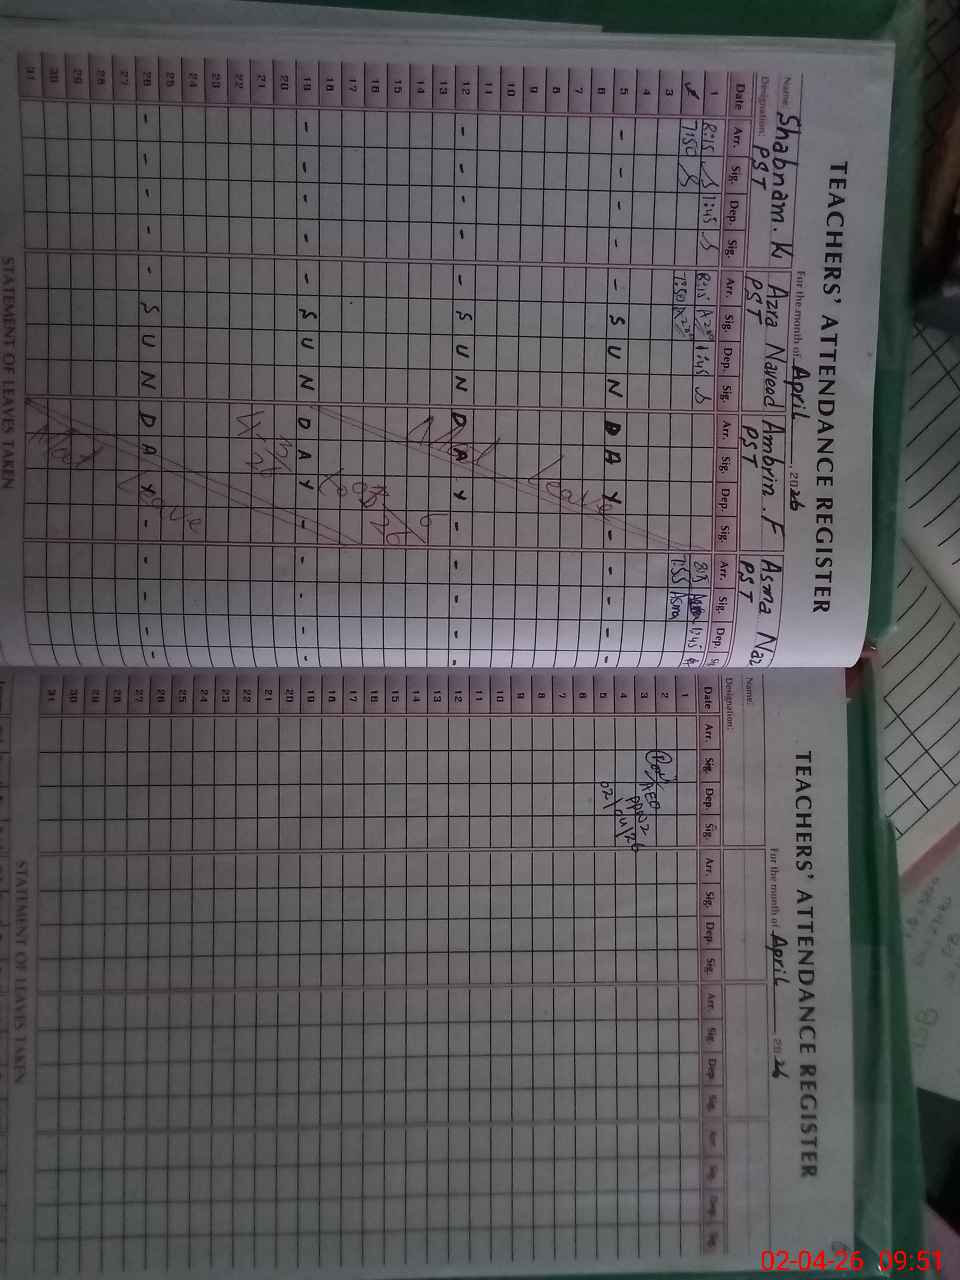 TEACHERS' ATTENDANCE REGISTER
For the month of April, 2026
Name: Shabnam. K Azra Naveed Ambrin. F Asma Naz
Designation: PST PST PST PST
Date Arr. Sig. Dep. Sig. Arr. Sig. Dep. Sig. Arr. Sig. Dep. Sig. Arr. Sig. Dep.
1 8:15 1:45 8:15 1:45 8:15 1:45
7:50 7:50 7:55 Asma
3
4
5 - - - - - S U N D A Y - - - - -
6
7
8
9
10
11
12 - - - - - S U N D A Y - - - - -
13
14
15
16
17
18
19 - - - - - S U N D A Y - - - - -
20
21
22
23
24
25
26 - - - - - S U N D A Y - - - - -
27
28
29
30
31
Leave
Leave
STATEMENT OF LEAVES TAKEN
TEACHERS' ATTENDANCE REGISTER
For the month of April, 2026
Name:
Designation:
Date Arr. Sig. Dep. Sig. Arr. Sig. Dep. Sig. Arr. Sig. Dep. Sig. Arr. Sig. Dep. Sig.
1
2
3
4
5
6
7
8
9
10
11
12
13
14
15
16
17
18
19
20
21
22
23
24
25
26
27
28
29
30
31
AEO
02/04/26
STATEMENT OF LEAVES TAKEN
02-04-26 09:51